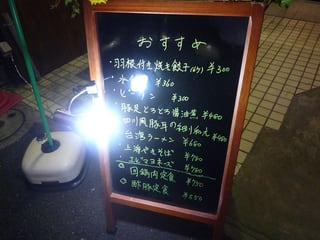 おすすめ
・羽根付き焼き餃子(6ケ) ¥300
・水 ¥360
・ピータン ¥300
・豚足とろとろ醤油煮 ¥480
四川風豚耳の和え ¥480
台湾ラーメン ¥680
・上海やきそば ¥780
・エビマヨネーズ ¥780
○ 回鍋肉定食 ¥750
○ 酢豚定食 ¥850